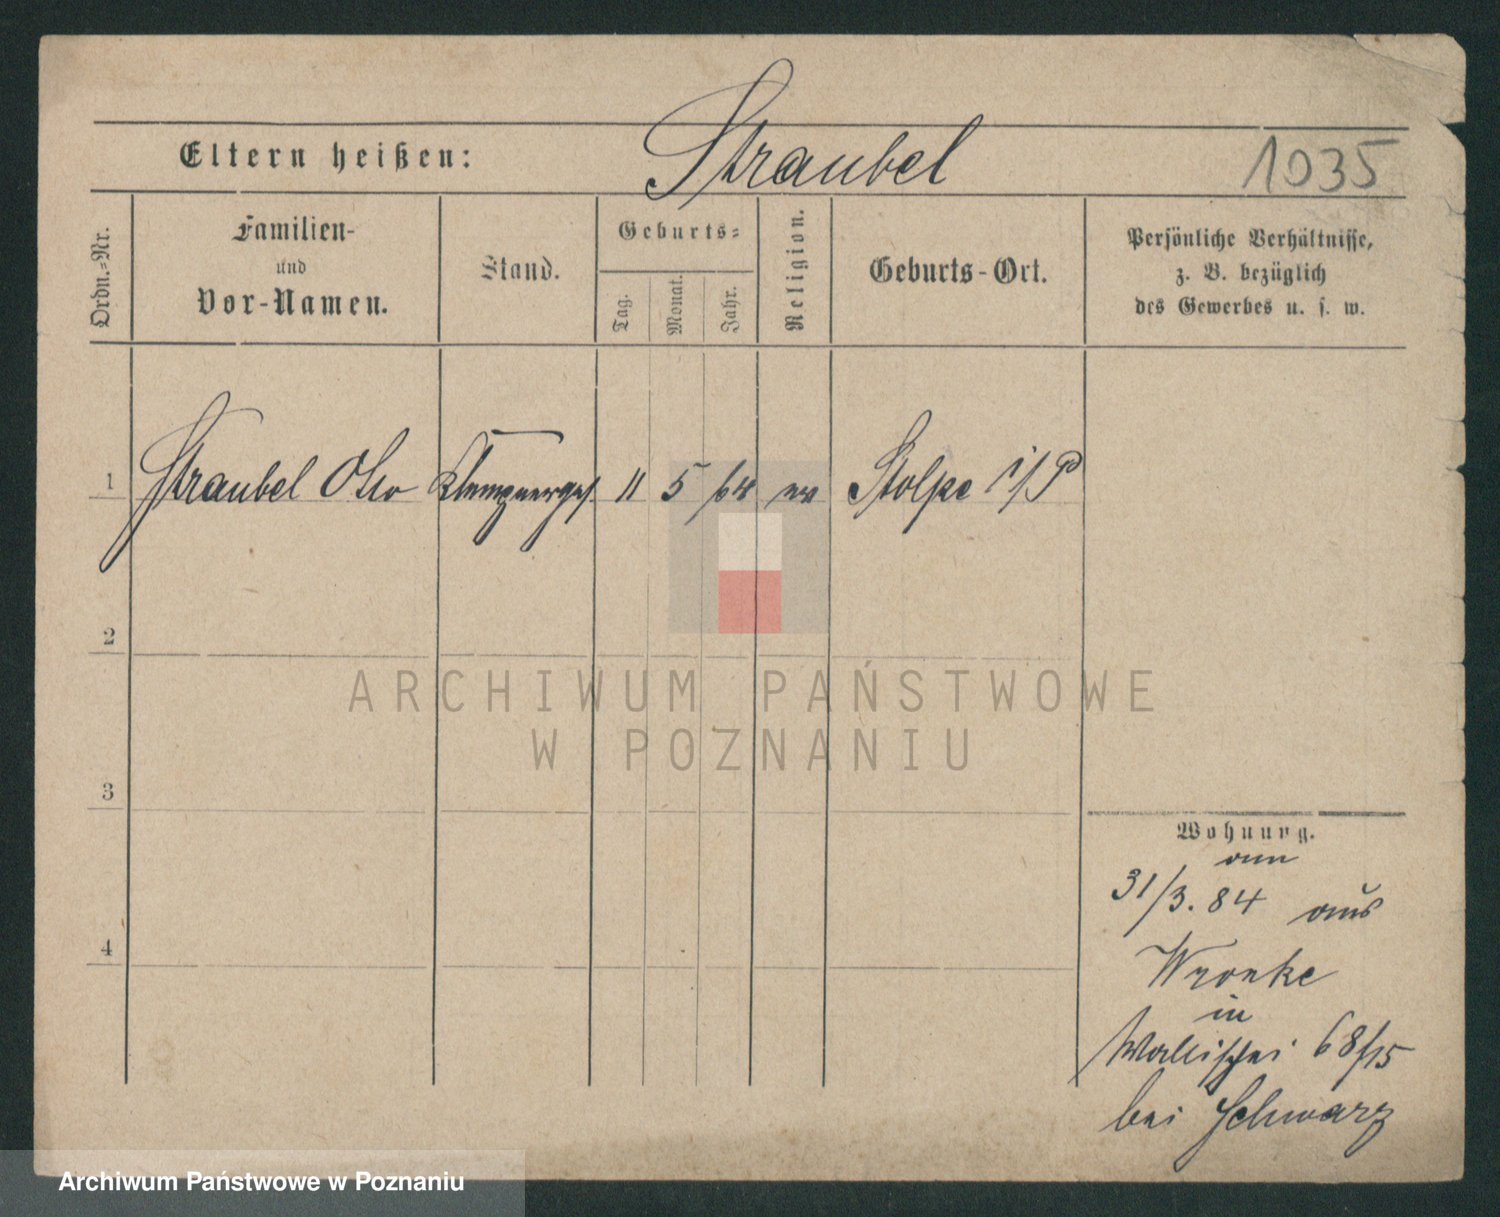 Straubel
Eltern heißen:
1035
Ordn.=Nr.
Familien-
und
Vor-Namen.
Stand.
Geburts=
Tag.
Monat.
Jahr.
Religion.
Geburts-Ort.
Persönliche Verhältnisse,
z. B. bezüglich
des Gewerbes u. s. w.
1 Straubel Otto Klempnerges. 11 5 64 ev Stolpe i/P
2
3
4
ARCHIWUM PAŃSTWOWE
W POZNANIU
Wohnung.
am
31/3. 84 aus
Wronke
in
Wallischei 68/15
bei Schwarz
Archiwum Państwowe w Poznaniu